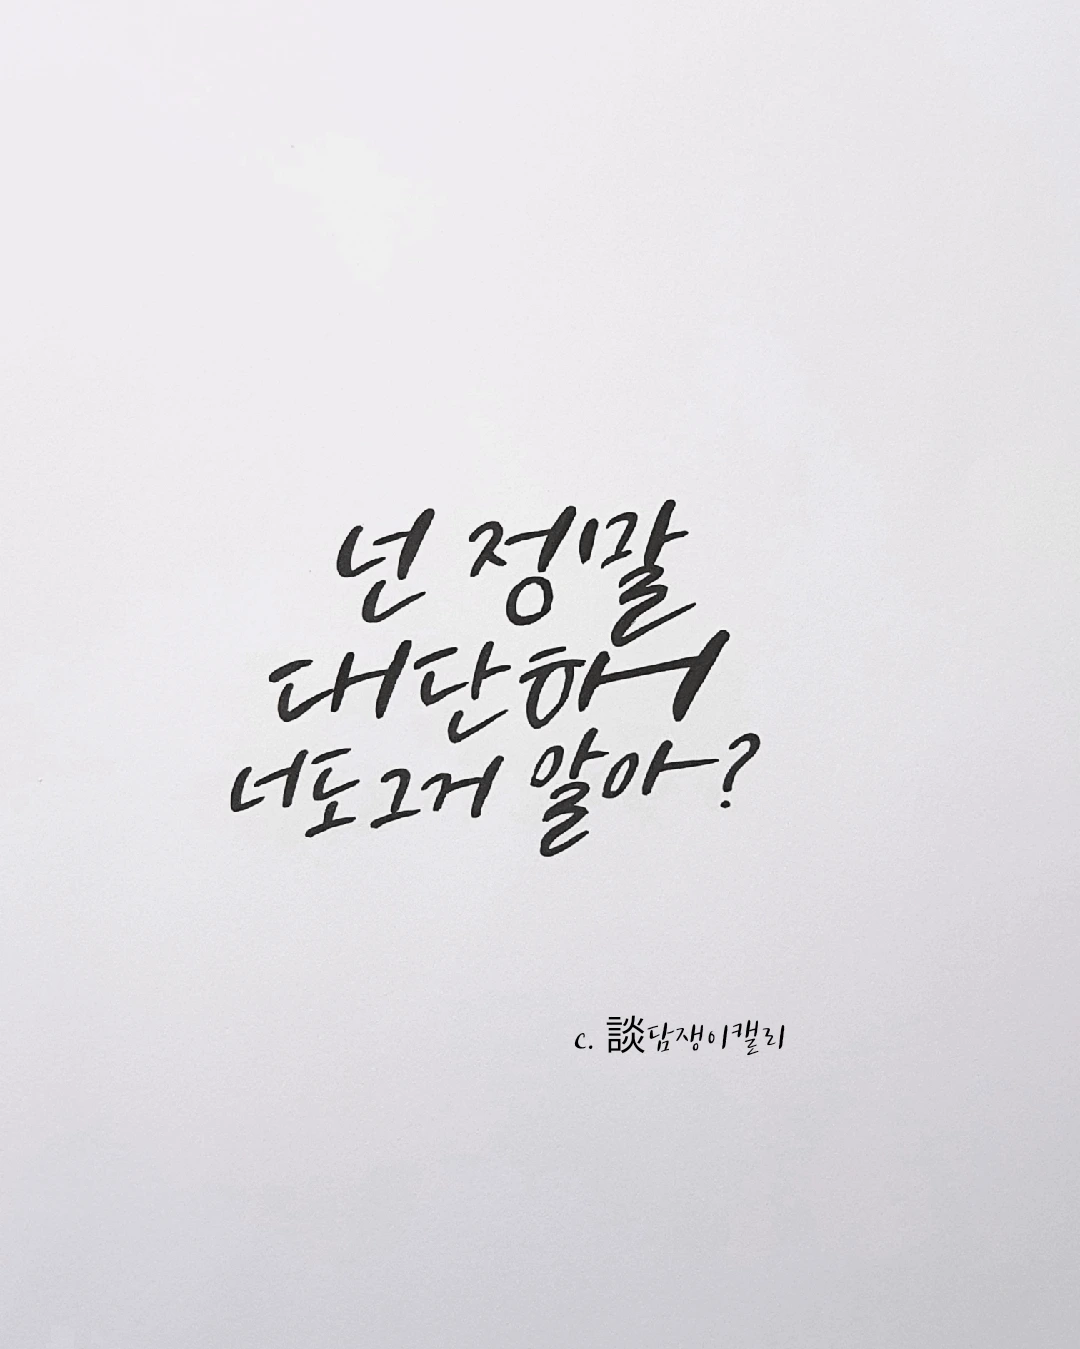 넌 정말
대단해
너도 그거 알아?
c. 談담쟁이캘리